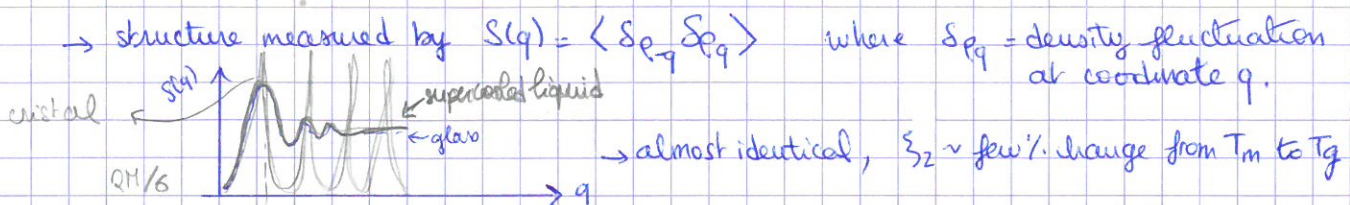 → structure measured by S(q) = ⟨δρ_-q δρ_q⟩ where δρ_q = density fluctuation
at coordinate q.
S(q)
supercooled liquid
cristal
← glass
→ almost identical, ξ_2 ~ few % change from T_m to T_g
q